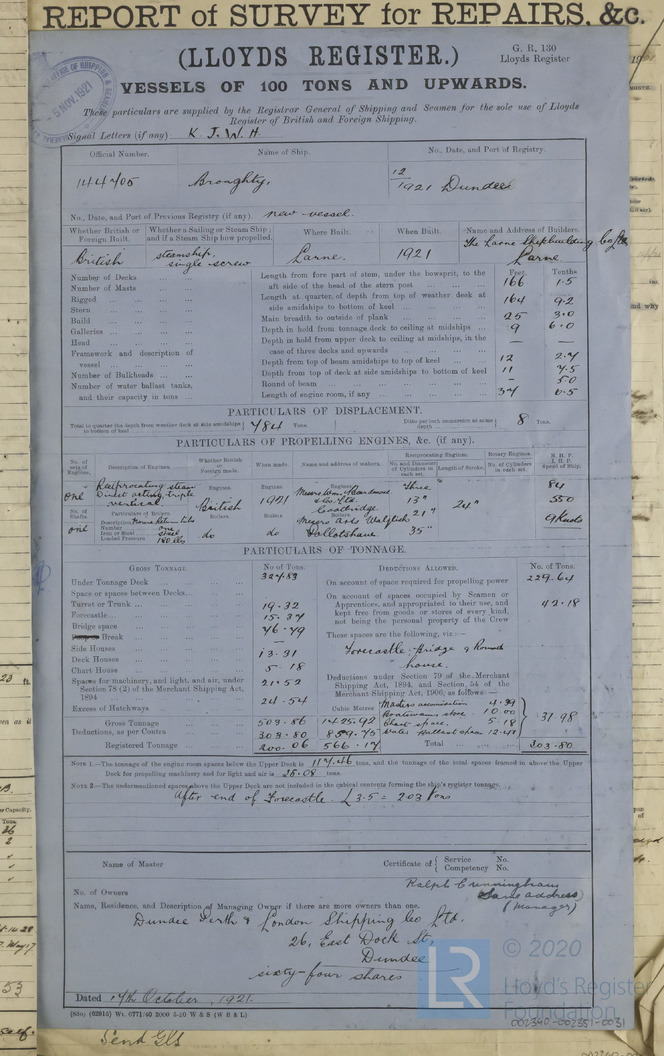 REPORT of SURVEY for REPAIRS, &c.
(LLOYDS REGISTER.)
G. R. 130
Lloyds Register
5 NOV. 1921
VESSELS OF 100 TONS AND UPWARDS.
These particulars are supplied by the Registrar General of Shipping and Seamen for the sole use of Lloyds
Register of British and Foreign Shipping.
Signal Letters (if any) K. J. W. H.
Official Number. Name of Ship. No., Date, and Port of Registry.
144705 Broughty, 12/1921 Dundee
No., Date, and Port of Previous Registry (if any). new vessel.
Whether British or Foreign Built. Whether a Sailing or Steam Ship; and if a Steam Ship how propelled. Where Built. When Built. Name and Address of Builders.
British steamship, single screw Larne. 1921 The Larne Shipbuilding Co Ltd Larne.
Feet. Tenths
Number of Decks Length from fore part of stem, under the bowsprit, to the aft side of the head of the stern post 166 1.5
Number of Masts
Rigged Length at quarter of depth from top of weather deck at side amidships to bottom of keel 164 9.2
Stern
Build Main breadth to outside of plank 25 3.0
Galleries Depth in hold from tonnage deck to ceiling at midships 9 6.0
Head Depth in hold from upper deck to ceiling at midships, in the case of three decks and upwards — —
Framework and description of vessel Depth from top of beam amidships to top of keel 12 2.7
Number of Bulkheads Depth from top of deck at side amidships to bottom of keel 11 7.5
Number of water ballast tanks, and their capacity in tons Round of beam — 5.0
Length of engine room, if any 37 0.5
PARTICULARS OF DISPLACEMENT.
Total to quarter the depth from weather deck at side amidships to bottom of keel 784 Tons. Ditto per inch immersion at same depth 8 Tons.
PARTICULARS OF PROPELLING ENGINES, &c. (if any).
No. of sets of Engines. Description of Engines. Whether British or Foreign made. When made. Name and address of makers. Reciprocating Engines. Rotary Engines. N.H.P. I.H.P. Speed of Ship.
No. and Diameter of Cylinders in each set. Length of Stroke. No. of Cylinders in each set.
one Reciprocating steam Direct acting, triple vertical. Engines. British Engines. 1921 Engines. three 13" 21" 35" 24" 84 550 9 Knots
Coatbridge
No. of Shafts. Particulars of Boilers. Boilers. Boilers. Boilers.
one Description
Number one
Iron or Steel steel
Loaded Pressure 180 lbs do do
PARTICULARS OF TONNAGE.
GROSS TONNAGE. No of Tons. DEDUCTIONS ALLOWED. No. of Tons.
Under Tonnage Deck 327.83 On account of space required for propelling power 229.64
Space or spaces between Decks
Turret or Trunk 19.32 On account of spaces occupied by Seamen or Apprentices, and appropriated to their use, and kept free from goods or stores of every kind, not being the personal property of the Crew 42.18
Forecastle 15.37
Bridge space 76.79
Break — These spaces are the following, viz:—
Side Houses Forecastle, Bridge & Round house.
Deck Houses 13.31
Chart House 5.18
Spaces for machinery, and light, and air, under Section 78 (2) of the Merchant Shipping Act, 1894 21.52 Deductions under Section 79 of the Merchant Shipping Act, 1894, and Section 54 of the Merchant Shipping Act, 1906, as follows:—
Excess of Hatchways 24.54
Cubic Metres
Masters accommodation 4.29
Boatswains store 10.00
Chart space. 5.18
Water ballast space 12.41
31.98
Gross Tonnage 503.86 1425.92
Deductions, as per Contra 303.80 859.75
Registered Tonnage 200.06 566.17 Total 303.80
NOTE 1.—The tonnage of the engine room spaces below the Upper Deck is 117.46 tons, and the tonnage of the total spaces framed in above the Upper
Deck for propelling machinery and for light and air is 25.08 tons.
NOTE 2.—The undermentioned spaces above the Upper Deck are not included in the cubical contents forming the ship's register tonnage.
After end of Forecastle. L 3.5 = 2.03 tons
Name of Master Certificate of { Service No. Competency No.
No. of Owners
Ralph Cunningham
(Same address)
(Manager)
Name, Residence, and Description of Managing Owner if there are more owners than one.
Dundee Perth & London Shipping Co Ltd.
26, East Dock St,
Dundee
sixty-four shares
Dated 17th October, 1921.
(880) (62915) Wt. 6771/40 2000 5-20 W & S (W B & L)
© 2020
LR
Lloyd's Register
Foundation
002340-002351-0031